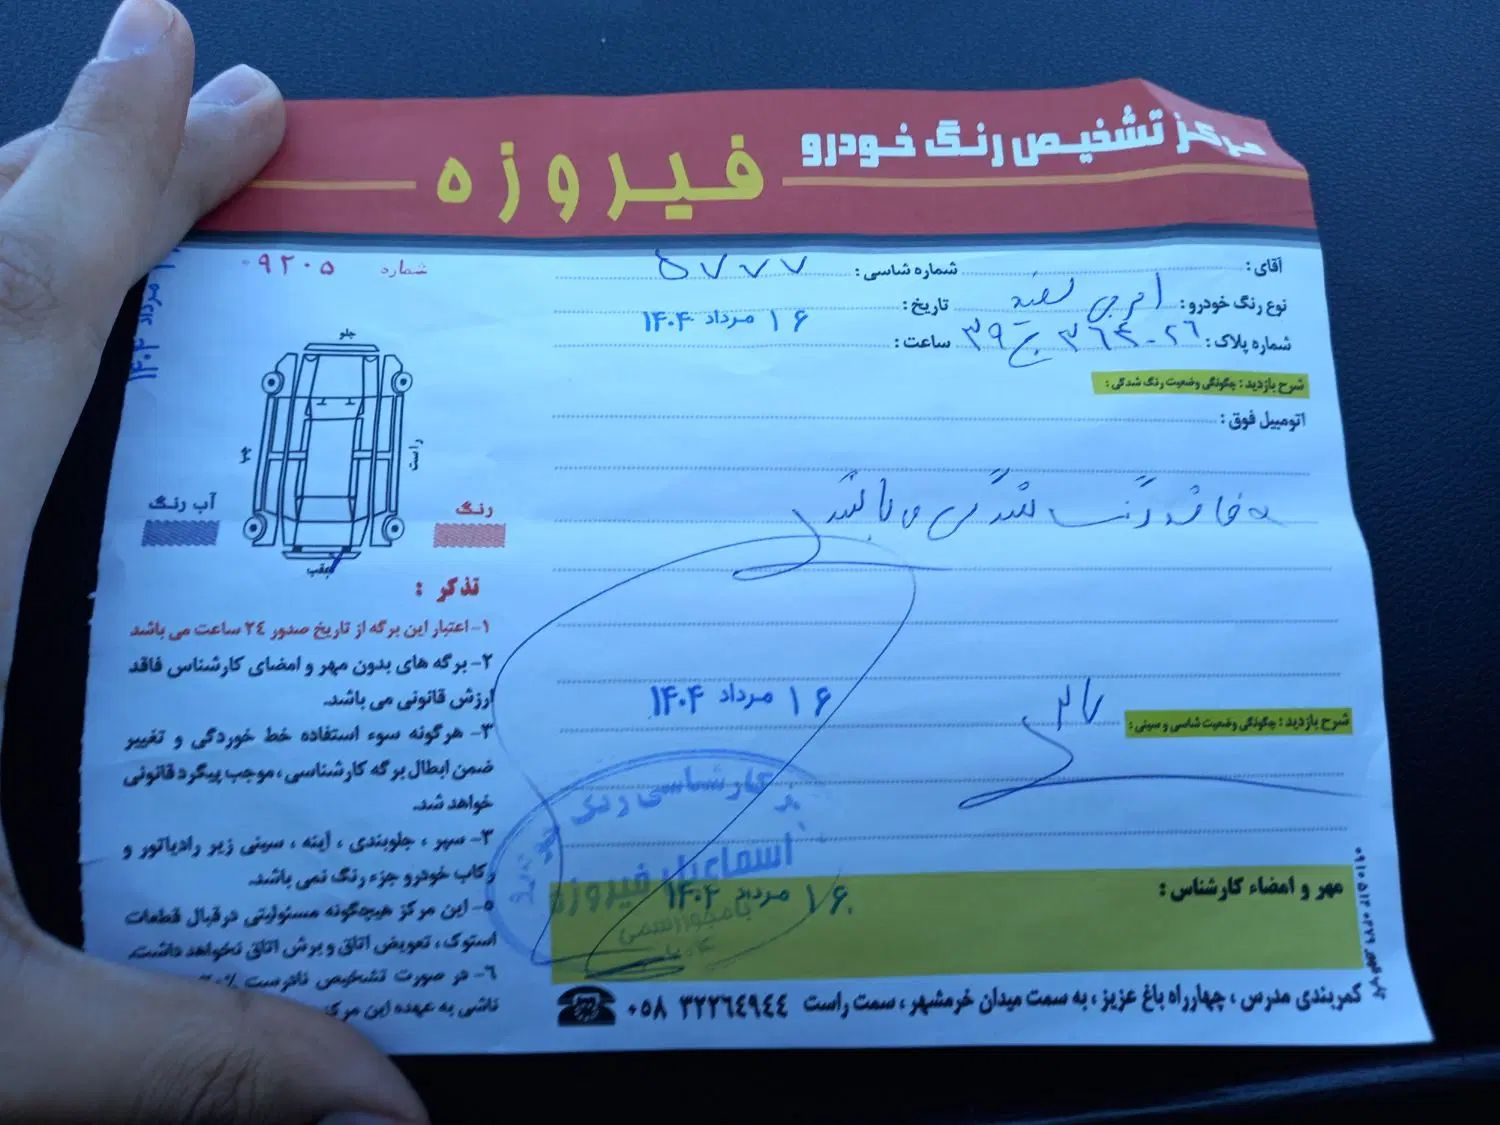 مرکز تشخیص رنگ خودرو
فیروزه
شماره ۰۹۲۰۵
آقای : شماره شاسی : ۵۷۷۷
نوع رنگ خودرو : سفید تاریخ : ۱۶ مرداد ۱۴۰۴
شماره پلاک : ۲۶ - ۳۶۴ ج ۳۹ ساعت :
شرح بازدید : چگونگی وضعیت رنگ شدگی :
اتومبیل فوق :
فاقد رنگ شدگی می باشد
۱۶ مرداد ۱۴۰۴
شرح بازدید : چگونگی وضعیت شاسی و سینی :
کارشناسی رنگ خودرو
اسماعیل فیروزه
با مجوز رسمی
۱۶ مرداد ۱۴۰۴
مهر و امضاء کارشناس :
کمربندی مدرس ، چهارراه باغ عزیز ، به سمت میدان خرمشهر ، سمت راست ۰۵۸ ۳۲۲۶۴۹۴۴
مرداد ۱۴۰۴
جلو
چپ
راست
عقب
آب رنگ
رنگ
تذکر :
۱- اعتبار این برگه از تاریخ صدور ۲٤ ساعت می باشد
۲- برگه های بدون مهر و امضای کارشناس فاقد
ارزش قانونی می باشد.
۳- هرگونه سوء استفاده خط خوردگی و تغییر
ضمن ابطال برگه کارشناسی ، موجب پیگرد قانونی
خواهد شد.
۳- سپر ، جلوبندی ، آینه ، سینی زیر رادیاتور و
رکاب خودرو جزء رنگ نمی باشد.
۵- این مرکز هیچگونه مسئولیتی در قبال قطعات
استوک ، تعویض اتاق و برش اتاق نخواهد داشت.
٦- در صورت تشخیص نادرست
ناشی به عهده این مرکز